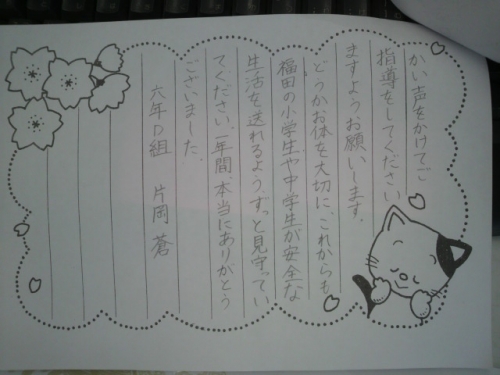 かい声をかけてご
指導をしてください
ますようお願いします。
どうかお体を大切に、これからも、
福田の小学生や中学生が安全な
生活を送れるよう、ずっと見守ってい
てください。一年間、本当にありがとう
ございました。
六年D組 片岡 蒼